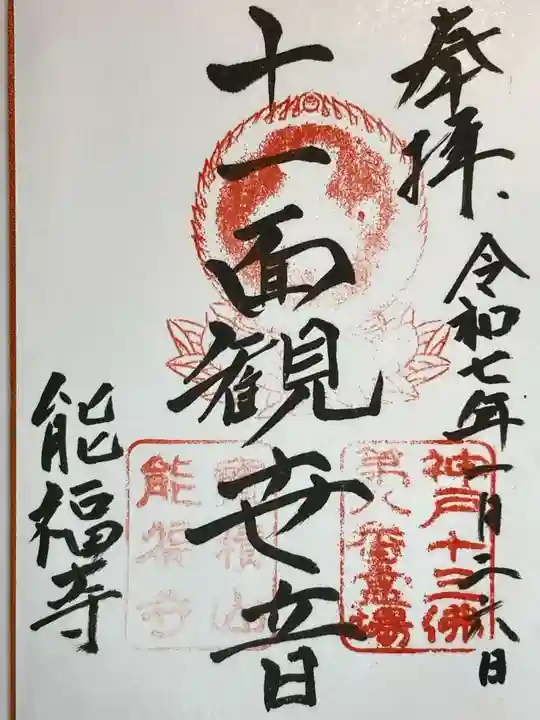 奉拝
令和七年一月二六日
神戸十三佛
第八番霊場
十一面観世音
寶積山
能福寺
能福寺